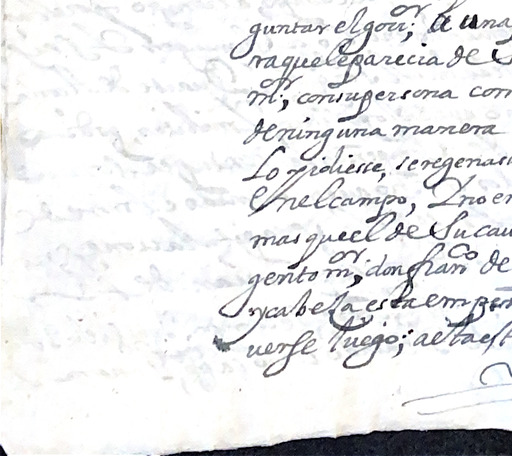 guntar el gouor; a una
ra que le parecia de
mor, con su persona com
de ninguna manera
Lo pidiesse, se regenas
Enel campo, Y no en
mas que el de Su cau
gento mor, don franco de
y cabeza esta em
uerse luego; a esta est